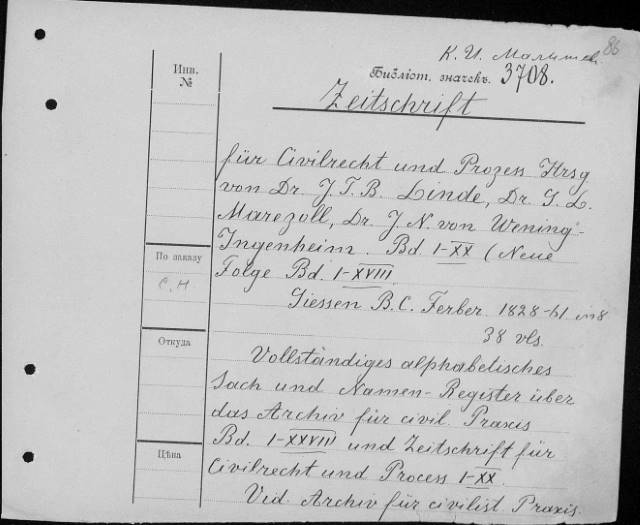 86
К. И. Малышев
Инв.
№
Библіот. значекъ. 3708.
Zeitschrift
für Civilrecht und Prozess Hrsg
von Dr. J. T. B. Linde, Dr. G. L.
Marezoll, Dr. J. N. von Wening-
Ingenheim. Bd. I-XX (Neue
Folge Bd. I-XVIII
По заказу
С. Н
Giessen B. C. Ferber. 1828-61 in 8
38 vls.
Откуда
Vollständiges alphabetisches
Sach und Namen-Register über
das Archiv für civil. Praxis
Bd. I-XXVIII und Zeitschrift für
Цѣна
Civilrecht und Process I-XX.
Vid. Archiv für civilist. Praxis.